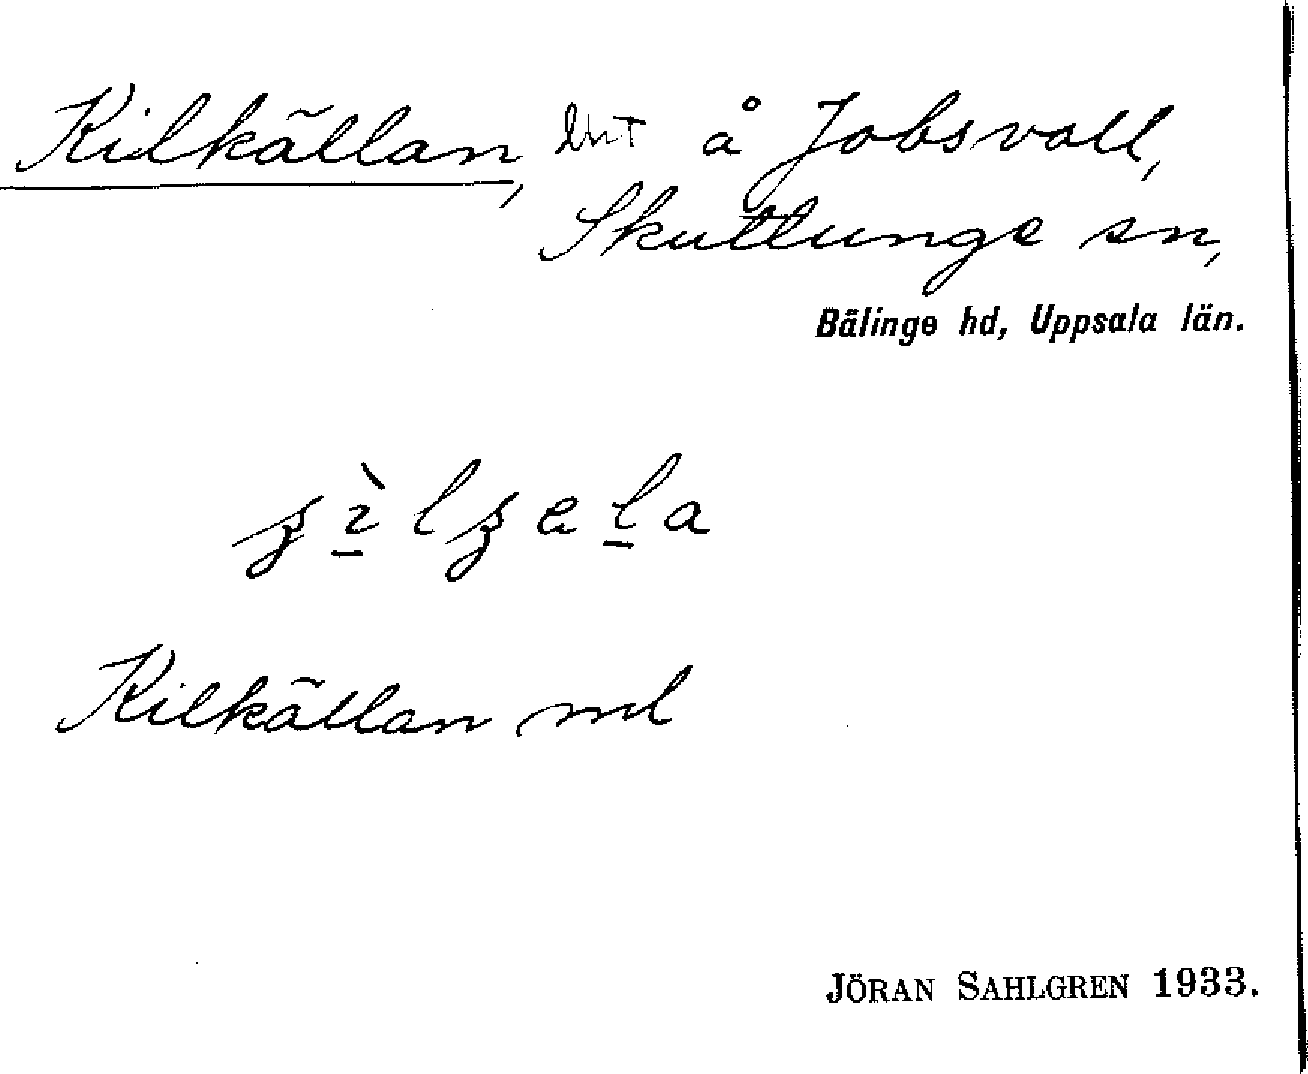 Kilkällan, lht å Jobsvall,
Skuttunge sn,
Bälinge hd, Uppsala län.
Kilkällan
JÖRAN SAHLGREN 1933.